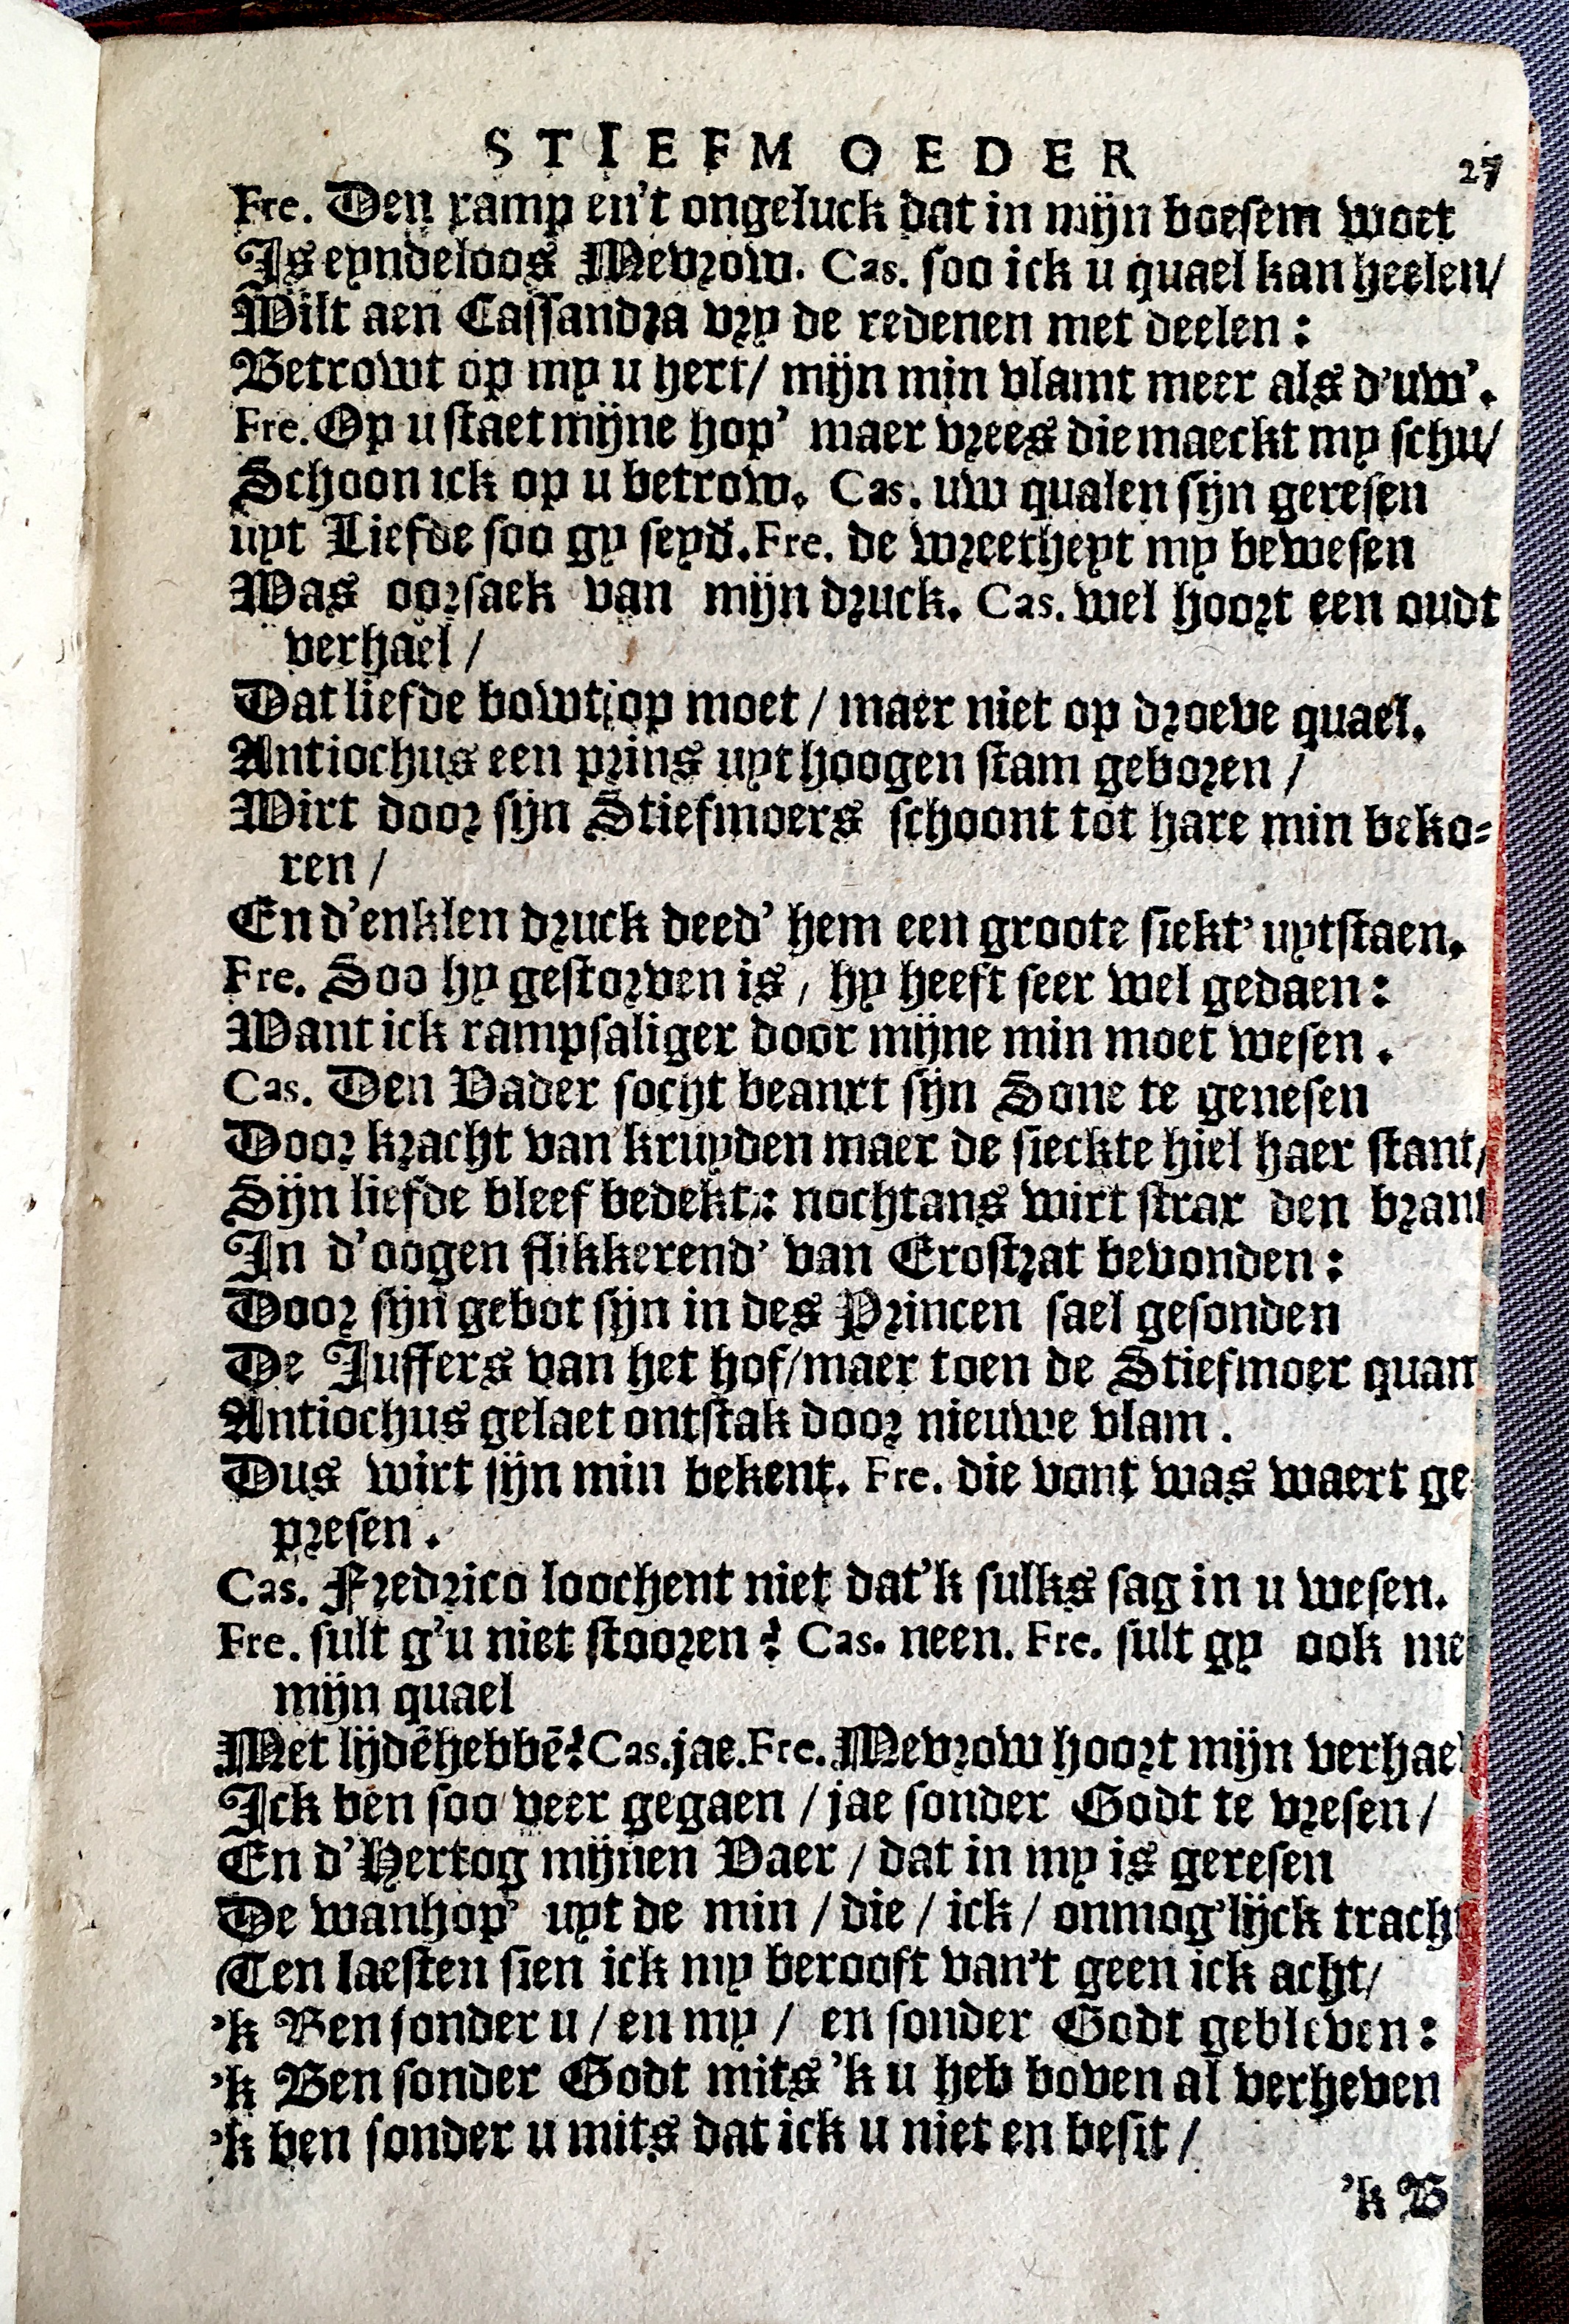 STIEFMOEDER 27
Fre. Den ramp en't ongeluck dat in mijn boesem woet
Is eyndeloos Mevrow. Cas. soo ick u quael kan heelen/
Wilt aen Cassandra vry de redenen met deelen :
Betrowt op my u hert/ mijn min vlamt meer als d'uw'.
Fre. Op u staet mijne hop' maer vrees die maeckt my schu/
Schoon ick op u betrow. Cas. uw qualen sijn geresen
uyt Liefde soo gy seyd. Fre. de wreetheyt my bewesen
Was oorsaek van mijn druck. Cas. wel hoort een oudt
verhael /
Dat liefde bowt op moet / maer niet op droeve quael.
Antiochus een prins uyt hoogen stam geboren /
Wirt door sijn Stiefmoers schoont tot hare min beko-
ren /
En d'enklen druck deed' hem een groote siekt' uytstaen.
Fre. Soo hy gestorven is, hy heeft seer wel gedaen :
Want ick rampsaliger door mijne min moet wesen.
Cas. Den Vader socht beanxt sijn Sone te genesen
Door kracht van kruyden maer de sieckte hiel haer stant/
Sijn liefde bleef bedekt: nochtans wirt strax den brant
In d'oogen flikkerend' van Erostrat bevonden :
Door sijn gebot sijn in des Princen sael gesonden
De Juffers van het hof/maer toen de Stiefmoer quam
Antiochus gelaet ontstak door nieuwe vlam.
Dus wirt sijn min bekent. Fre. die vont was waert ge
presen.
Cas. Fredrico loochent niet dat'k sulks sag in u wesen.
Fre. sult g'u niet stooren? Cas. neen. Fre. sult gy ook me
mijn quael
Met lijdē hebbē? Cas. jae. Fre. Mevrow hoort mijn verhael
Ick ben soo veer gegaen / jae sonder Godt te vresen /
En d'Hertog mijnen Vaer / dat in my is geresen
De wanhop' uyt de min / die / ick / onmog'lijck tracht
Ten laesten sien ick my berooft van't geen ick acht/
'k Ben sonder u / en my / en sonder Godt gebleven :
'k Ben sonder Godt mits 'k u heb boven al verheven
'k ben sonder u mits dat ick u niet en besit /
'k B